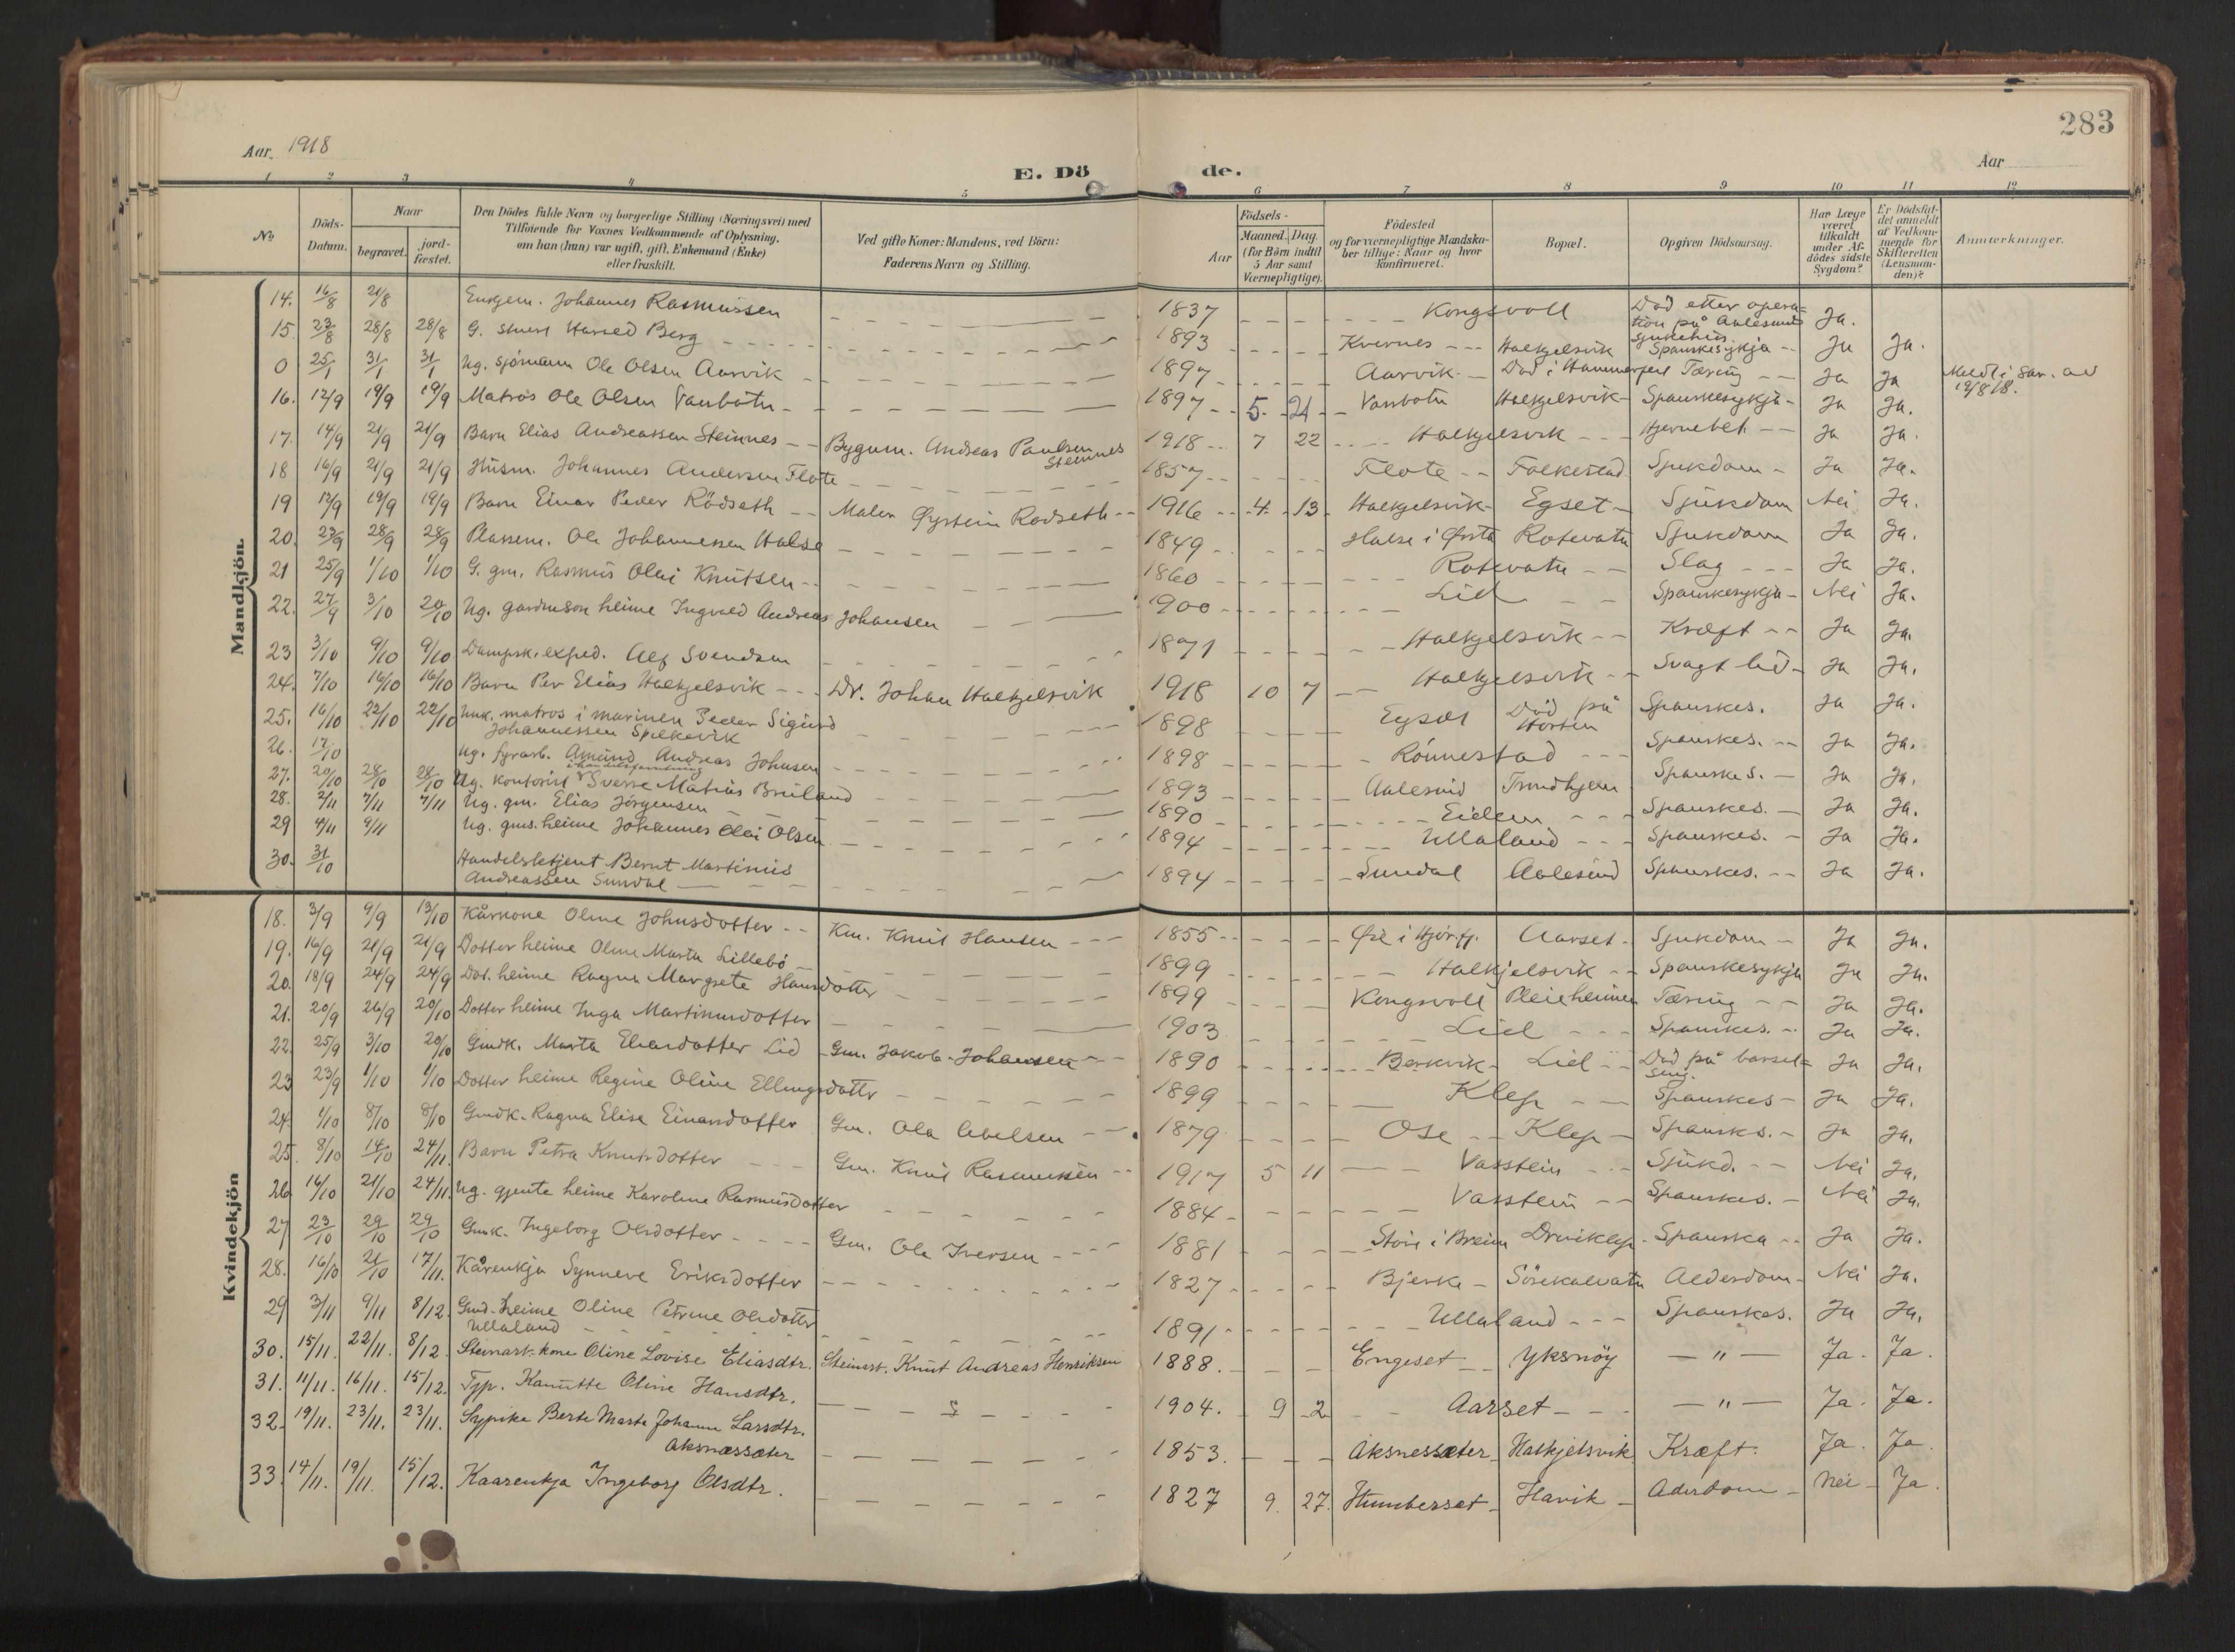 283
Aar. 1918
E. Dö de.
Aar
1 2 3 4 5 6 7 8 9 10 11 12
№
Döds-Datum.
Naar
begravet.
jord-fæstet.
Den Dödes fulde Navn og borgerlige Stilling (Næringsvei) med
Tilföiende for Voxnes Vedkommende af Oplysning,
om han (hun) var ugift, gift, Enkemand (Enke)
eller fraskilt.
Ved gifte Koner: Mandens, ved Börn:
Faderens Navn og Stilling.
Födsels-
Aar
Maaned. Dag
(for Börn indtil
5 Aar samt
Værnepligtige).
Födested
og for værnepligtige Mandska-
ber tillige: Naar og hvor
konfirmeret.
Bopæl.
Opgiven Dödsaarsag.
Har Læge
været
tilkaldt
under Af-
dödes sidste
Sygdom?
Er Dödsfal-
det anmeldt
af Vedkom-
mende for
Skifteretten
(Lensman-
den)?
Anmærkninger.
Mandkjön.
14. 16/8 21/8 Johannes Rasmussen 1837 Kongsvoll Död etter opera=
tion på Aalesunds
sjukehus Ja.
15. 23/8 28/8 28/8 G. Harald Berg 1893 Kvernes Halkjelsvik Spanskesykja Ja Ja.
0 25/1 31/1 31/1 Ug. sjömann Ole Olsen Aarvik 1897 Aarvik Död i Hammerfest Tæring Ja Ja 19/8 18.
16. 12/9 19/9 19/9 Matros Ole Olsen Vassbotn 1897 5 21 Vassbotn Halkjelsvik Spanskesykja Ja Ja.
17. 14/9 21/9 21/9 Barn Elias Andreassen Steinnes Bygnm. Andreas Paulsen
Steinnes 1918 7 22 Halkjelsvik Hjernebet Ja Ja.
18 16/9 21/9 21/9 Husm. Johannes Andersen Flote 1857 Flote Folkestad Sjukdom Ja Ja.
19 13/9 19/9 19/9 Barn Einar Peder Rödseth Maler Øystein Rødseth 1916 4 13 Halkjelsvik Egset Sjukdom Nei Ja.
20. 23/9 28/9 28/9 Plassm. Ole Johannessen Halse 1849 Halse i Ørsta Rotevatn Sjukdom Ja Ja.
21 25/9 1/10 1/10 G. gm. Rasmus Olai Knutsen 1860 Rotevatn Slag Ja Ja.
22. 27/9 3/10 20/10 Ug. gardmson heime Ingvald Andreas Johansen 1900 Lid Spanskesykja Nei Ja.
23 3/10 9/10 9/10 Dampsk. exped. Alf Svendsen 1871 Halkjelsvik Kræft Ja Ja.
24. 7/10 16/10 16/10 Barn Per Elias Halkjelsvik Dr. Johan Halkjelsvik 1918 10 7 Halkjelsvik Svagt liv Ja Ja.
25. 16/10 22/10 22/10 Unk. matros i marinen Peder Sigurd
Johannessen Spilkevik 1898 Egset Död på
Horten Spanskes. Ja Ja.
26. 17/10 Ug. fyrarb. Amund Andreas Johnsen 1898 Rönnestad Spanskes. Ja Ja.
27. 20/10 28/10 28/10 Ug. kontorist Sverre Matias Breiland 1893 Aalesund Trondhjem Spanskes. Ja Ja.
28. 2/11 7/11 7/11 Ug. gm. Elias Jörgensen 1890 Eidem Spanskes. Ja Ja.
29 4/11 9/11 Ug. gms. heime Johannes Olai Olsen 1894 Ullaland Spanskes. Ja Ja.
30. 31/10 Handelsbetjent Bernt Martinus
Andreassen Sundal 1894 Sundal Aalesund Spanskes. Ja Ja.
Kvindekjön
18. 3/9 9/9 13/10 Kårkone Oline Johnsdotter Km. Knut Hansen 1855 Øie i Hjör.fj. Aarset Sjukdom Ja Ja.
19. 16/9 21/9 21/9 Dotter heime Oline Marta Lillebö 1899 Halkjelsvik Spanskesykja Ja Ja.
20. 18/9 24/9 24/9 Dot. heime Ragna Margrete Hansdotter 1899 Kongsvoll Pleieheimen Tæring Ja Ja.
21. 20/9 26/9 20/10 Dotter heime Inga Martinusdotter 1903 Lid Spanskes. Ja Ja.
22. 25/9 3/10 20/10 Gmdk. Marta Eliasdotter Lid Gm. Jakob Johansen 1890 Berkvik Lid Död på barsel=
seng. Ja Ja.
23 23/9 1/10 1/10 Dotter heime Regine Oline Ellingsdotter 1899 Klep Spanskes Ja Ja.
24. 1/10 8/10 8/10 Gmdk. Ragna Elise Einarsdotter Gm. Ola Abelsen 1879 Ose Klep Spansks. Ja Ja.
25. 8/10 14/10 24/11. Barn Petra Knutsdotter Gm. Knut Rasmussen 1917 5 11 Vasstein Sjukd. Nei Ja.
26. 16/10 21/10 24/11. Ug. gjente heime Karoline Rasmusdotter 1884 Vasstein Spanskes. Nei Ja.
27 23/10 29/10 29/10 Gmk. Ingeborg Olsdotter Gm. Ole Iversen 1881 i Breim Spanska Ja Ja.
28. 16/10 21/10 17/11. Kårenkja Synneve Eriksdotter 1827 Bjerke Alderdom Nei Ja.
29 3/11 9/11 8/12. Gmd. heime Oline Petrine Olsdotter
Ullaland 1891 Ullaland Spanskes. Ja Ja.
30. 15/11. 22/11. 8/12. Steinarb. kone Oline Lovise Eliasdtr. Steinarb. Knut Andreas Henriksen 1888. Engeset Yksnöy — " — Ja. Ja.
31. 11/11. 16/11. 15/12. Typ. Kanutte Oline Hansdtr. 1904. 9 2 Aarset — " — Ja. Ja.
32. 19/11. 23/11. 23/11. Sypike Berte Marte Johanne Larsdtr.
Aksnessæter 1853. Aksnessæter Halkjelsvik Kræft. Ja. Ja.
33. 14/11. 19/11. 15/12. Kaarenkja Ingeborg Olsdtr. 1827 9. 27. Humberset Havik Aderdom Nei Ja.